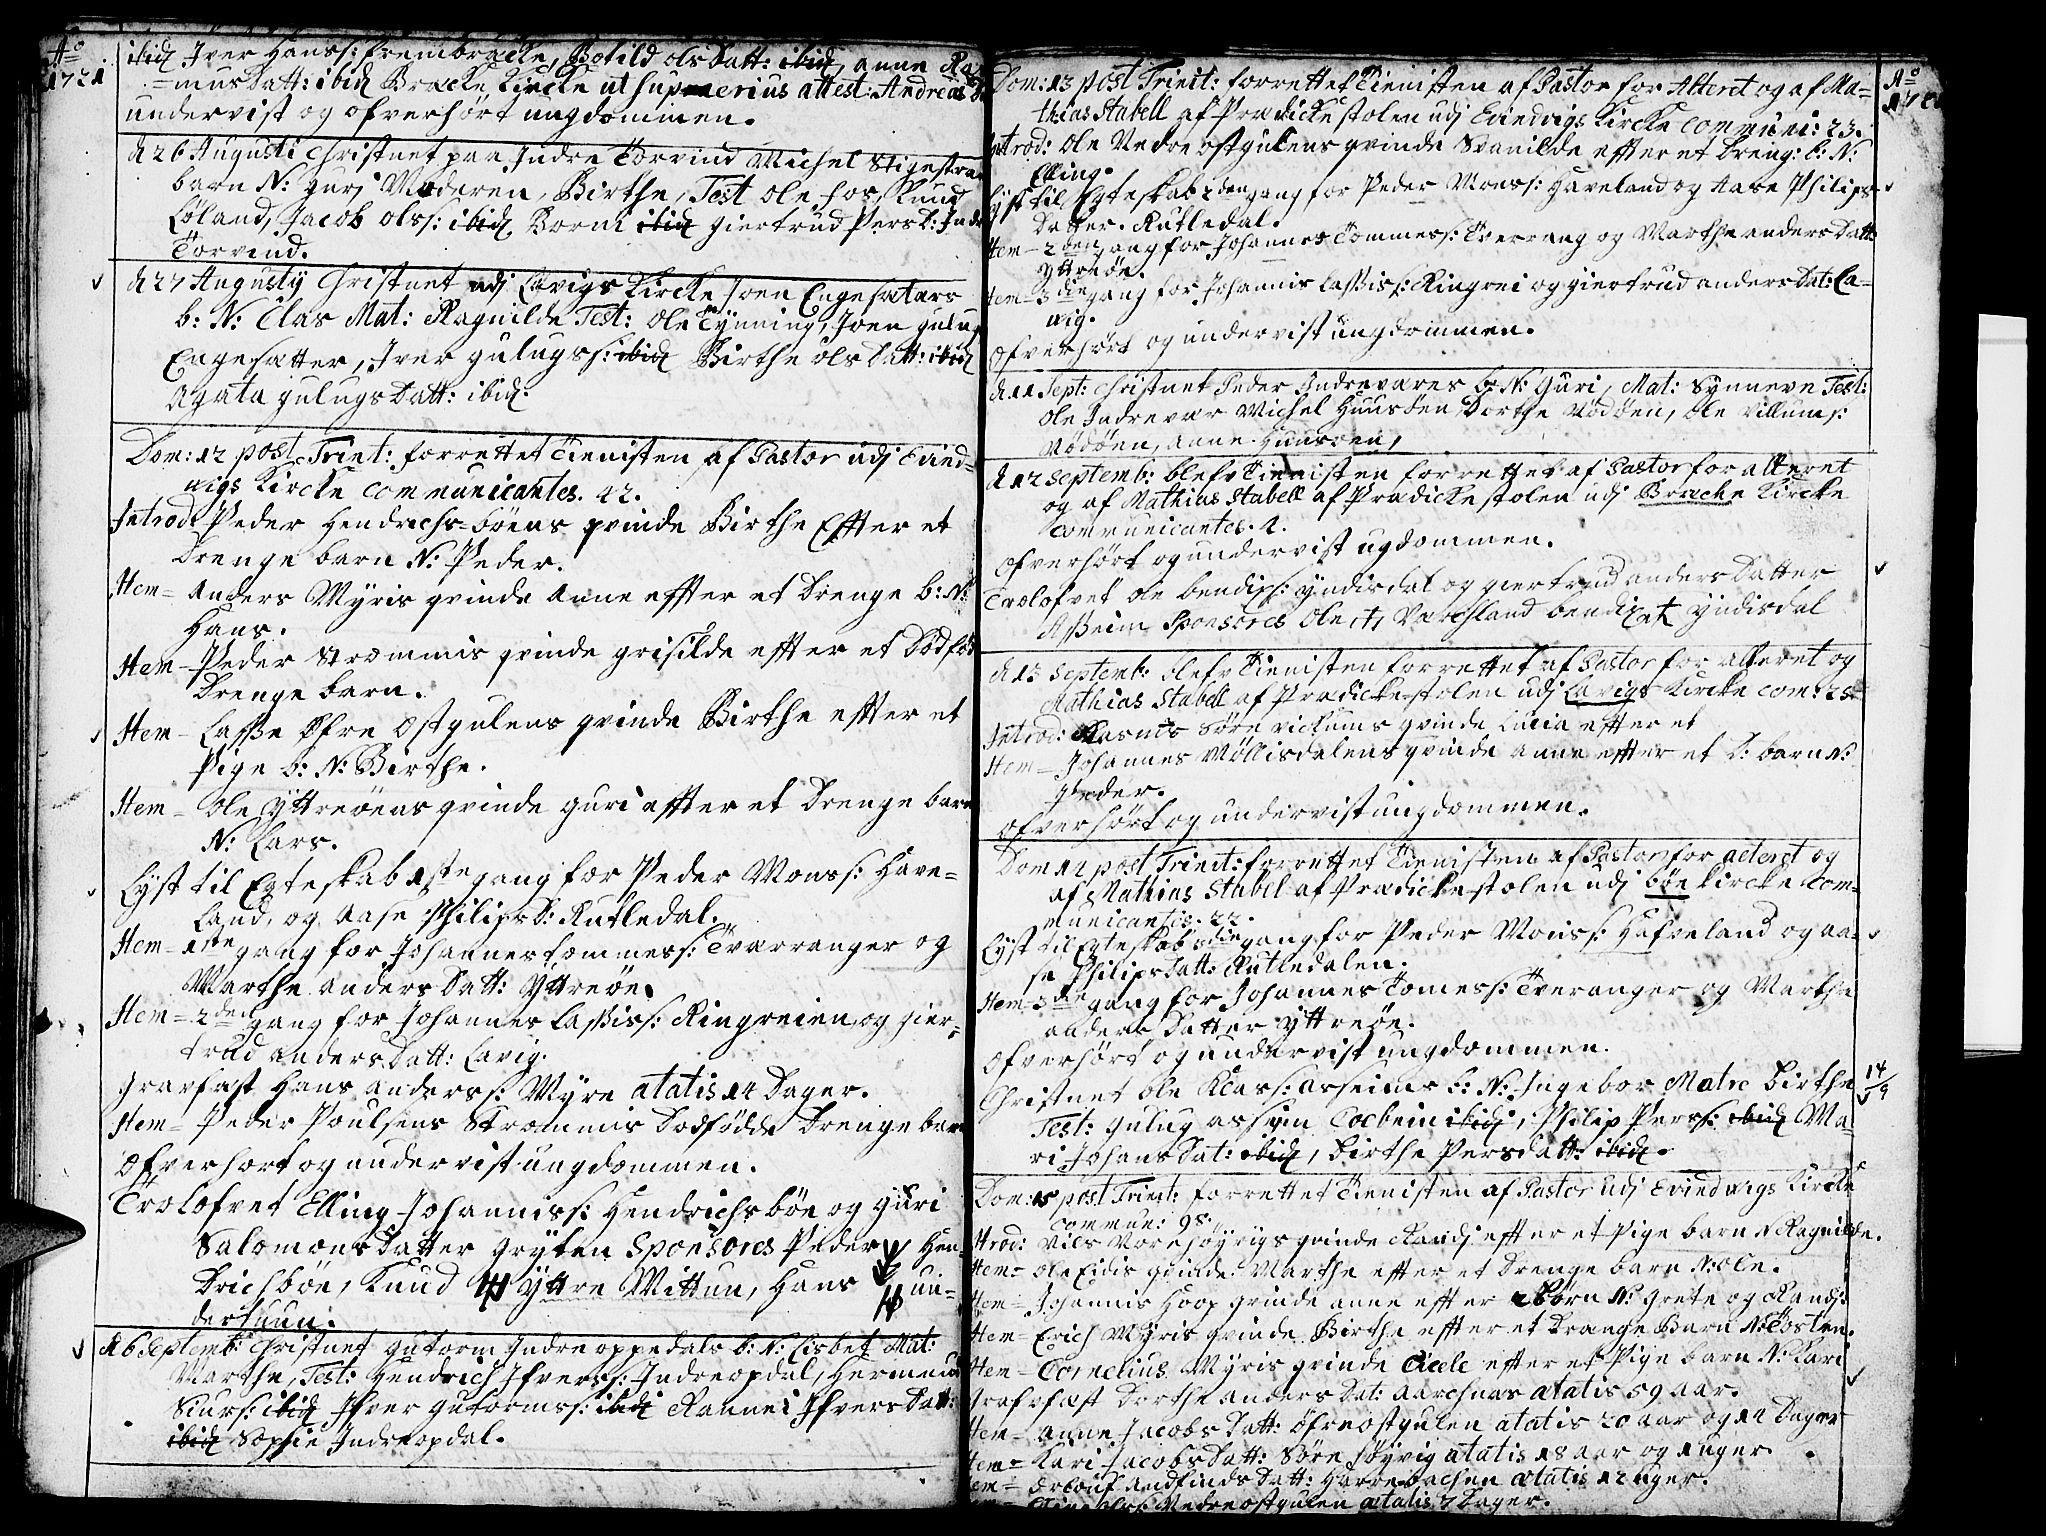 Aº
1721
ibid Iver Hanss: frembracke, Botild ols Datt: ibid, anne Ra-
=mus Datt: ibid Bracke Kircke ut superius attest: Andreas
undervist og ofverhört ungdommen.
d 26 Augusti Christnet paa Indre Torvind Michel Stigestra
barn N: Guri Moderen, Birthe, Test Ole hos, Knud
Löland, Jacob olss: ibid Borni ibid giertrud Persd: Indr
Torvind.
d 27 Augustÿ Christnet udj Lavigs Kircke Joen Engesætars
b: N: Elas Mat: Ragnilde Test: Ole Tÿnning, Joen gulug
Engesætter, Iver gulugss: ibid Birthe ols Datt: ibid
Agata gulugs Datt: ibid.
Dom: 12 post Trint: forrettet Tienisten af Pastor udj Evind-
wigs Kircke communicantes. 42.
Introd: Peder Hendrichs-böens qvinde Birthe Effter et
Drenge barn N: Peder.
Item = Anders Mÿris qvinde Anne effter et Drenge b: N:
Hans.
Item - Peder Strommis qvinde grisilde effter et Dödföd
Drenge barn.
Item - Lasse Öfre Ostgulens qvinde Birthe effter et
Pige b: N: Birthe.
Item = Ole Ÿttreöens qvinde guri effter et Drenge barn
N: Lars.
Lÿst til Egteskab 1ste gang for Peder Monss: Have=
land, og Aase Philips D: Rutledal.
Item = 1ste gang for Johannes Tommess: Tværranger og
Marthe anders Datt: Ÿttreöe.
Item = 2den gang for Johannes Lassiss: Ringreien og gier=
trud anders Datt: Lavig.
Gravfæst Hans anderss: Mÿre ætatis 14 Dager.
Item = Peder Poulsens Strommis Dodfödde Drenge barn
Ofverhort og undervist ungdommen.
Trolofvet Elling Johanniss: Hendrichsböe og guri
Salomons Datter Grÿten Sponsores Peder Hen-
drichböe, Knud Ÿttre Mittun, Hans un-
dertuun.
d 6 Septemb: Christnet gutorm Indreoppedals b: N: Lisbet Mat:
Marthe, Test: Hendrich Ifverss: Indreopdal, Hermund
Siurs: ibid Ifver gutormss: ibid Rannei Ifvers Datt:
ibid Sophie Indreopdal.
Aº
Dom: 13 post Trinit: forrettet Tienisten af Pastor for Alteret og af Ma=
thias Stabell af Prædickestolen udj Evindvigs Kircke communi: 23.
Introd: Ole Nedre ostgulens qvinde Svanilde effter et Dreng: b: N:
Elling.
Lÿst til Egteskab 2den gang for Peder Monss: Haveland og Aase Philips
Datter. Rutledal.
Item - 2den gang for Johannes Tommess: Tverrang og Marthe anders Datt:
Ÿttreöe.
Item = 3die gang for Johannis Lassiss: Ringrei og giertrud anders Dat: La=
wig.
Ofverhört og undervist ungdommen.
d 11 Sept: christnet Peder Indreværes b: N: Guri, Mat: Sÿnneve Test:
Ole Indrevær Michel Huusöen, Dorthe Nödöen, Ole Villums:
Nödöen, anne Huusöen,
d 12 Septemb: blef Tienisten forrettet af Pastor for alteret
og af Mathias Stabell af Prædickestolen udj Bracke Kircke
Communicantes. 1.
Ofverhört og undervist ugdommen.
Trolofvet Ole bendixs: ÿndisdal og giertrud anders Datter
Asseim Sponsores Ole Varchland bendix ÿndisdal
d 13 Septemb: blef Tienisten forrettet af Pastor for alteret og
Mathias Stabell af Prædickestolen udj Lavigs Kircke com: 25
Introd: Rasmus Söre vickums qvinde Lucia effter et
Item = Johannes Möllisdalens qvinde anne effter et D: barn N:
Peder.
Ofverhört og undervist ungdommen.
Dom 14 post Trinit: forrettet Tienisten af Pastor for alteret og
af Mathias Stabel af Prædickestolen udj böe Kircke Com=
municantis. 22.
Lÿst til Egteskab 3die gang for Peder Monss: Hafveland og aa=
se Philips Datt: Rutledalen.
Item = 3die gang for Johannes Tomess: Tveranger og Marthe
anders Datter Ÿttreöe.
Ofverhört og undervist ungdommen.
Christnet Ole Klass: Asseims b: N: Ingebor Matre Birthe 14/9
Test: Gulug assiem Torbein ibid, Philip Perss: ibid Ma=
ri Johans Dat: ibid, Birthe Persdatt: ibid.
Dom: 15 post Trinit: forrettet Tienisten af Pastor udj Evindwigs Kircke
commun: 98.
Introd: Niels Norehöÿrigs qvinde Randj effter et Pige barn N Ragnilde.
Item = Ole Eidis qvinde Marthe effter et Drenge barn N: Ole.
Item = Johannis Hoop qvinde anne effter 2 Börn N: Grete og Randi
Item = Erich Mÿris qvinde Birthe effter et Drenge Barn N: Tosten.
Item = Cornelius Mÿris qvinde Cicele effter et Pige barn N: Kari
Grafvfæst Dorthe anders Dat: aarehuas ætatis 59 aar.
Item = Anne Jacobs Datt: öfreostgulen ætatis 20 aar og 14 Dager
Item = Kari Jacobs Datt: Söre höÿvig ætatis 18 aar og 1 uger.
Item = Andfinds Datt: Harrebachen ætatis 12 uger.
Nedreostgulen ætatis 7 Dager.